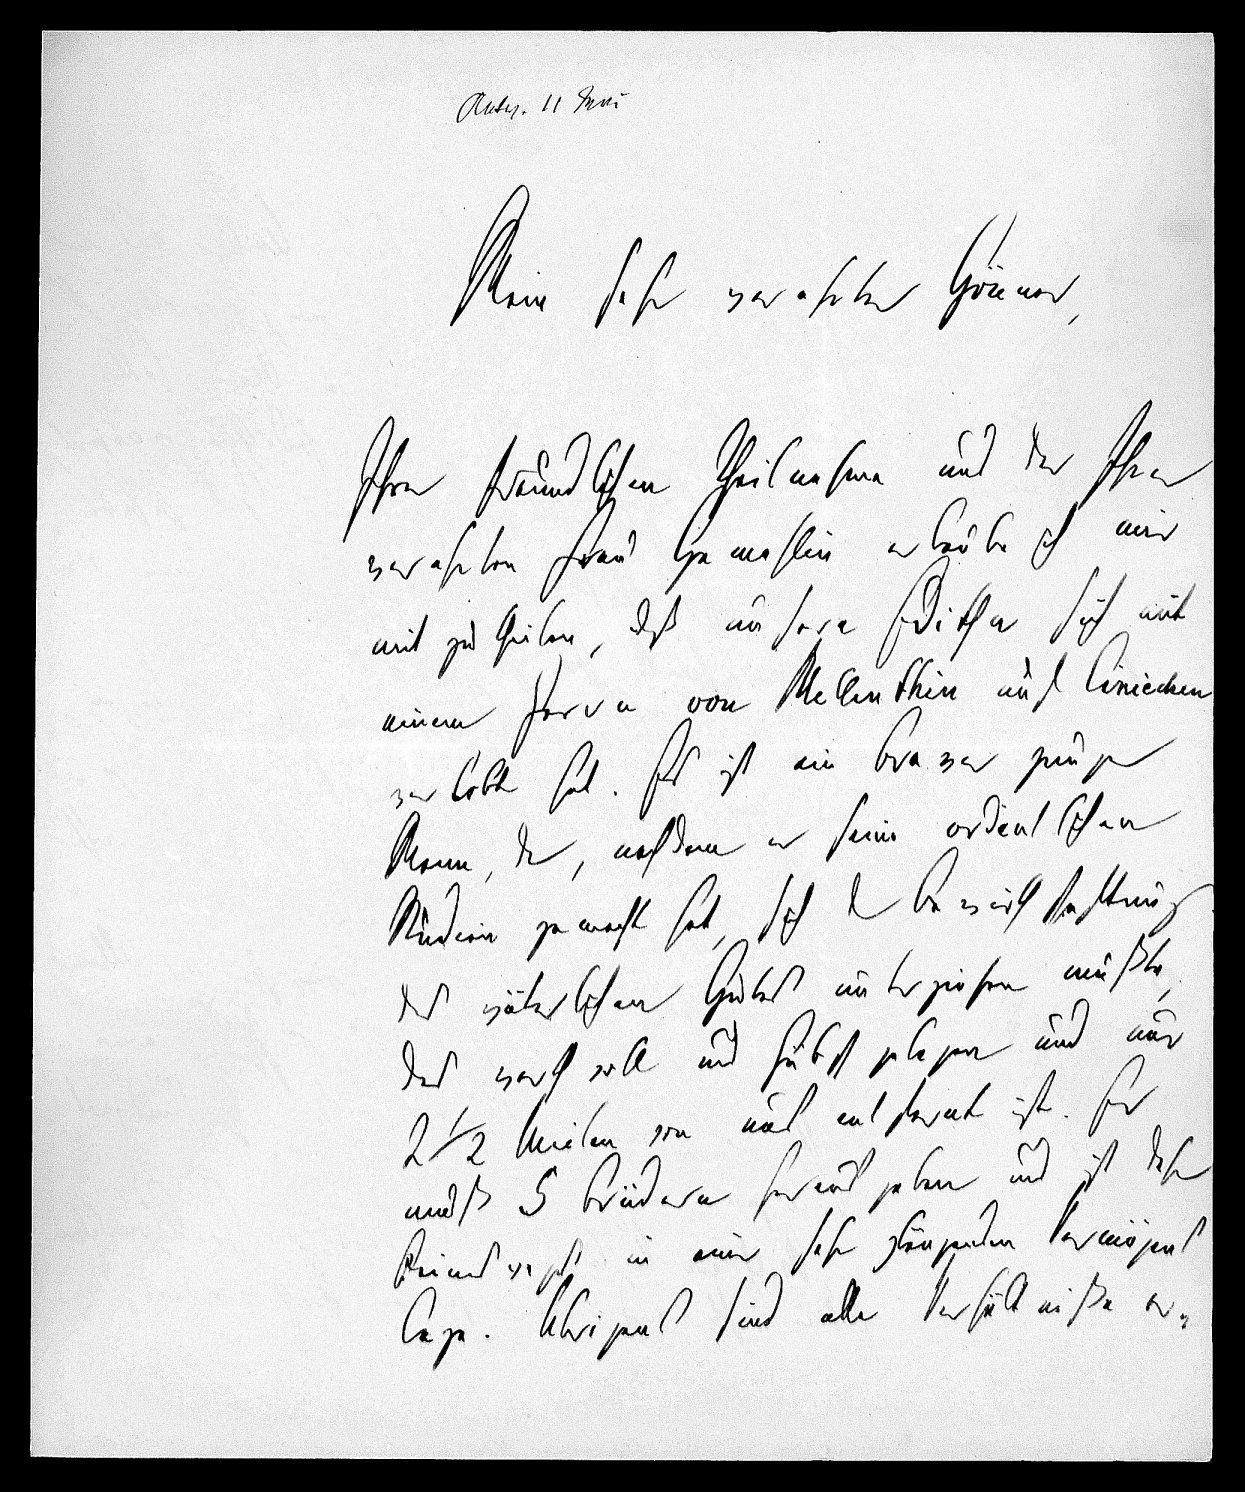 11 Juni
Mein sehr verehrter Gönner,
Ihrer freundlichen Theilnahme und der Ihrer
verehrten Frau Gemahlin erlaube ich mir
mit zu theilen, daß unsere Editha sich mit
einem Herrn von Mellenthin auf Liniechen
verlobt hat. Es ist ein braver junger
Mann, der, nachdem er seine ordentlichen
Studien gemacht hat, sich der Bewirthschaftung
des väterlichen Gutes unterziehen mußte,
das werthvoll und hübsch gelegen und nur
2 1/2 Meilen von uns entfernt ist. Er
muß 5 Brüdern herausgeben und ist daher
keineswegs in einer sehr glänzenden Vermögens
Lage. Übrigens sind alle Verhältniße er-